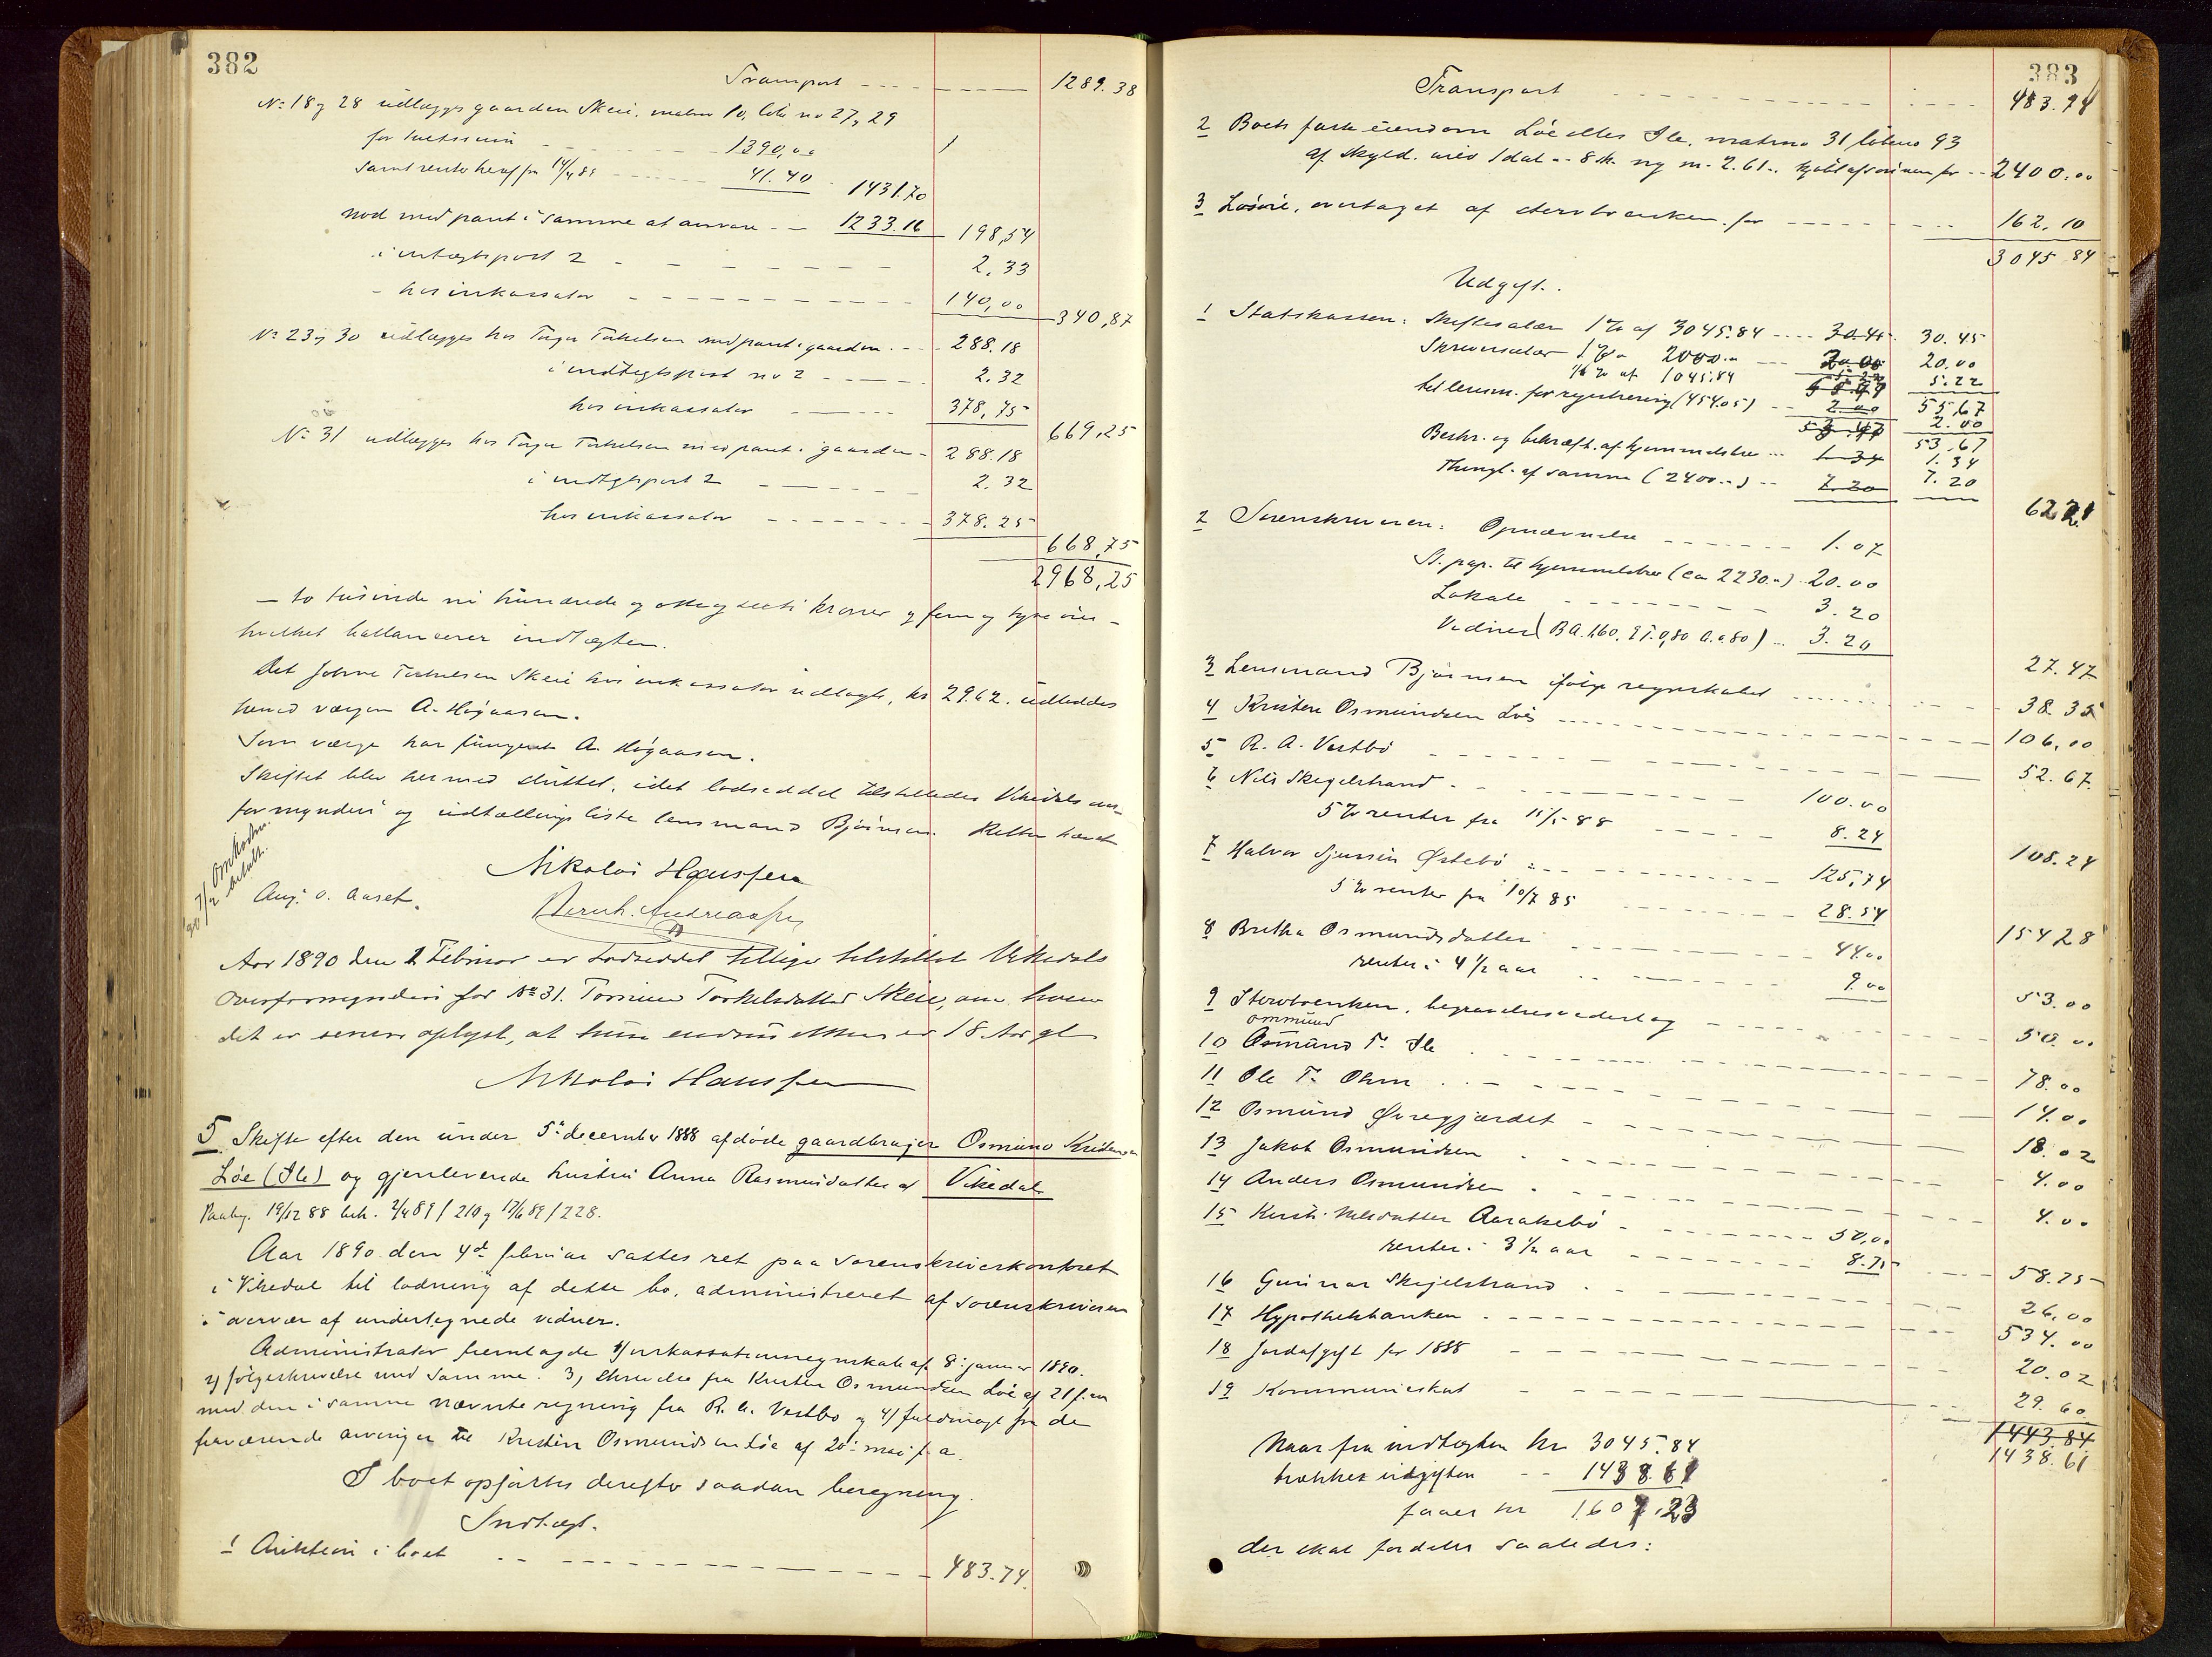 382
Transport ---- ---- 1289.38
No 18 og 28 udlægges gaarden Skeie, matrno 10, løbe no 27, 29
for taxtsum - - - 1390,00
samt renter heraf fra 14/4 89 ---- 41.40 1431.70
mod med pant i samme at ansvare -- 1233.16 198,54
i indtægtspost 2 - - - 2.33
- hos inkassator - - - 140,00 340,87
No 23 og 30 udlægges hos Torger Torkelsen med pant i gaarden --- 288.18
i indtægtspost no 2 - - - 2.32
hos inkassator - - - 378,75 669,25
No 31 udlægges hos Torger Torkelsen med pant i gaarden - 288.18
i indtgtspost 2 - - - 2.32
hos inkassator - - - 378.25
668,75
2968,25
- to tusinde ni hundrede og otte og seeti kroner og fem og tyve øre -
hvilket ballancerer indtægten.
Det Johne Torkelsen Skeie hos inkassator udlagte, kr 29.62. udbeddes
hemed værgen A. Høgaasen.
Som værge har fungeret A. Høgaasen.
Skiftet blev hermed sluttet, idet lodseddel tilstilledes Vikedals over-
formynderi og udtællingsliste lensmand Bjørnsen. Retten hævet
Nikolai Hanssen
Aug. O. Aaset. Bernh. Andreassen
7/2 90 Omkostn. betalt.
Aar 1890 den 1. Februar er Lodseddel tillige tilstillet Vikedals
Overformynderi for No 31. Tomine Torkelsdatter Skeie, om hvem
det er senere oplyst, at hun endnu ikke er 18 Aar gl
Nikolai Hanssen
5. Skifte efter den under 5te december 1888 afdøde gaardbruger Osmund Kristensen
Løe (Ile) og gjenlevende hustru Anna Rasmusdatter af Vikedal
Paabeg. 19/12 88 beh. 2/4 89 / 210 og 17/6 89 / 228.
Aar 1890 den 4de februar sattes ret paa sorenskriverkontoret
i Vikedal til lodning af dette bo, administreret af sorenskriveren
i overvær af undertegnede vidner.
Administrator fremlagde 1/ inkassationsregnskab af 8de januar 1890.
2/ følgeskrivelse med samme. 3, skrivelse fra Kristen Osmundsen Løe af 21 f.m
med den i samme nævnte regning fra R. A. Vestbø og 4/ fuldmagt fra de
fraværende arvinger til Kristen Osmundsen Løe af 20de mai f. a.
I boet opførtes derefter saadan beregning.
Indtægt.
1 Auktion i boet - - - 483.74.
383
Transport - - - 483.74
2 Boets faste eiendom Løe eller Ile, matrno 31 løbeno 93
af skyld. urev 1 dal -- 8 sk. ny m. 2.61., kjøbt af sønnen for -- 2400.00
3 Løsøre, overtaget af stervbenken for - - - 162.10
3045 84
Udgift.
1 Statskassen: Skiftesalær 1% af 3045.84 ---- 30.45 30.45
Skriversalær 1% " 2000.- --- 20.00 20.00
1/2% af 1045.84 5.22 5.22
55,67
tillerum. for registrering (454.05) -- 2.00 2.00
53,67
Beskr. og bekræft. af hjemmelsbr ... 1.34 1.34
Thingl. af samme (2400.-) -- 7.20 7.20
62.21
2 Sorenskriveren: Opnævnelse - - - 1.07
St. pap. til hjemmelsbr (ca 2230.-) 20.00
Lokale - - - 3.20
Vidner (B A. 1,60. E T. 0,80 A. a 80) -- 3.20
27.47
3 Lensmand Bjørnsen ifølge regnskabet - - - 38.35
4 Kristen Osmundsen Løe - - - 106,00
5 R. A. Vestbø - - - 52.67
6 Nils Skegelstrand - - - 100.00
5% renter fra 11/5 88 - - - 8.24
108.24
7 Halvor Sjursen Østebø - - - 125,74
5% renter fra 10/7 85 - - - 28.54
154 28
8 Bretha Osmundsdatter - - - 44.00
renter i 4 1/2 aar - - - 9.00
53.00
9 Stervbenken, begravelsesvederlag - - - 50.00
ommund
10 Osmund T. Ile - - - 78.00
11 Ole T. Ohm - - - 14.00
12 Osmund Øvregjærdet - - - 18.02
13 Jakob Osmundsen - - - 4.00
14 Anders Osmundsen - - - 4.00
15 Kirsti Nelsdatter Aarakebø - - - 50,00
renter i 3 1/2 aar - - - 8.75 58.75
16 Gunnar Skegelstrand - - - 26,00
17 Hypothekbanken - - - 534.00
18 Jordafgift for 1888 - - - 20.02
19 Kommuneskat - - - 29.60
1443.84
1438.61
Naar fra indtægten kr 3045.84
trækkes udgiften -- 1438.61
faaes kr 1607.23
der skal fordeles saaledes: